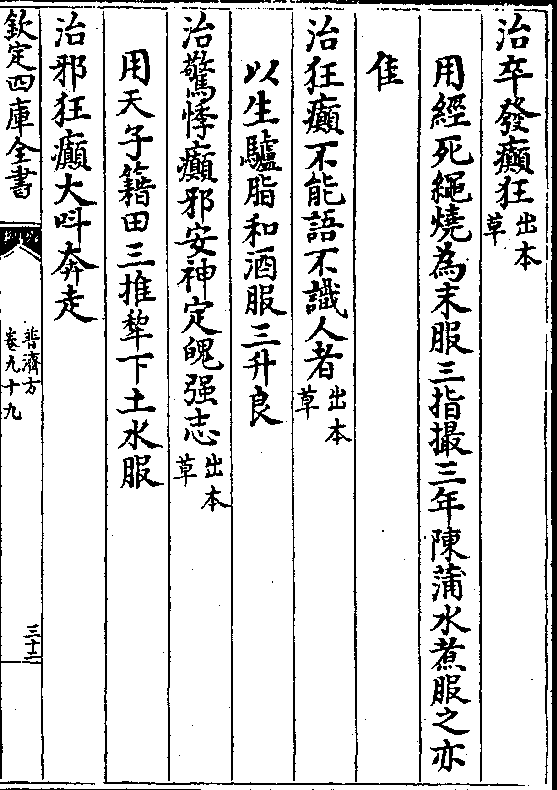 治卒發癲狂出本草
用經死繩燒為末服三指撮三年陳蒲水煮服之亦
佳
治狂癲不能語不識人者出本草
以生驢脂和酒服三升良
治驚悸癲邪安神定魄强志出本草
用天子籍田三推犂下土水服
治邪狂癲大呌奔走
欽定四庫全書
普濟方
卷九十九
三十二